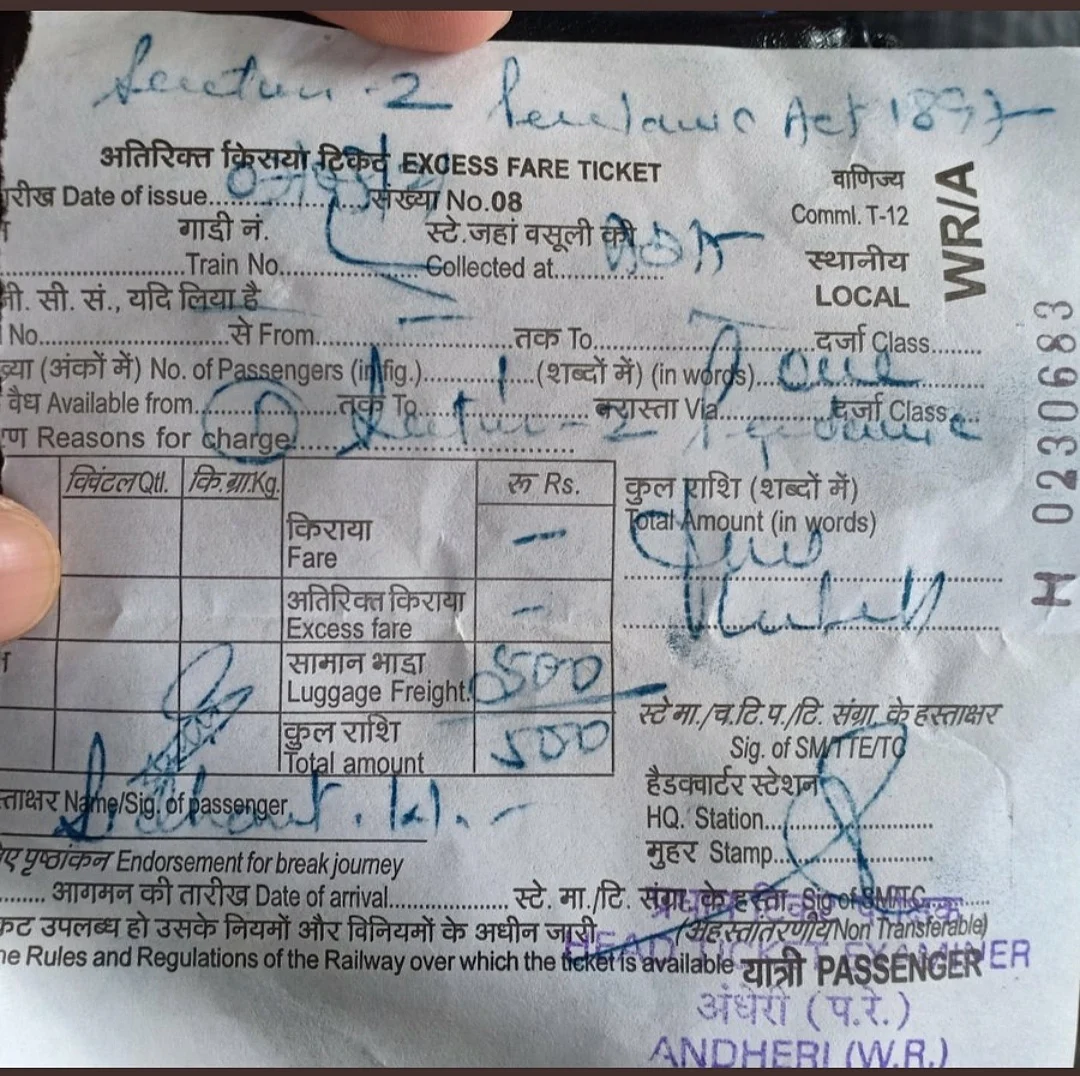 Section-2 Pendamic Act 1897
अतिरिक्त किराया टिकट EXCESS FARE TICKET
वाणिज्य
Comml. T-12
WR/A
रीख Date of issue.............. संख्या No.08
गाडी नं.
Train No.
स्टे.जहां वसूली की
Collected at
स्थानीय
LOCAL
H 0230683
पी. सी. सं., यदि लिया है
No. से From तक To दर्जा Class
ख्या (अंकों में) No. of Passengers (in fig.) 1 (शब्दों में) (in words) One
वैध Available from तक To व्हाया Via दर्जा Class
रण Reasons for charge Section-2
क्विंटल Qtl. कि.ग्रा.Kg. रू Rs.
कुल राशि (शब्दों में)
Total Amount (in words)
किराया
Fare —
अतिरिक्त किराया
Excess fare —
सामान भाडा
Luggage Freight. 500
कुल राशि
Total amount 500
स्टे मा./च.टि.प./टि. संग्रा. के हस्ताक्षर
Sig. of SM/TTE/TC
हैडक्वार्टर स्टेशन
HQ. Station
मुहर Stamp
स्ताक्षर Name/Sig. of passenger
िए पृष्ठांकन Endorsement for break journey
आगमन की तारीख Date of arrival स्टे. मा./टि. संग्रा. के हस्ता. Sig of SM/TC
कट उपलब्ध हो उसके नियमों और विनियमों के अधीन जारी (अहस्तांतरणीय Non Transferable)
he Rules and Regulations of the Railway over which the ticket is available यात्री PASSENGER
HEAD TICKET EXAMINER
अंधेरी (प.रे.)
ANDHERI (W.R.)